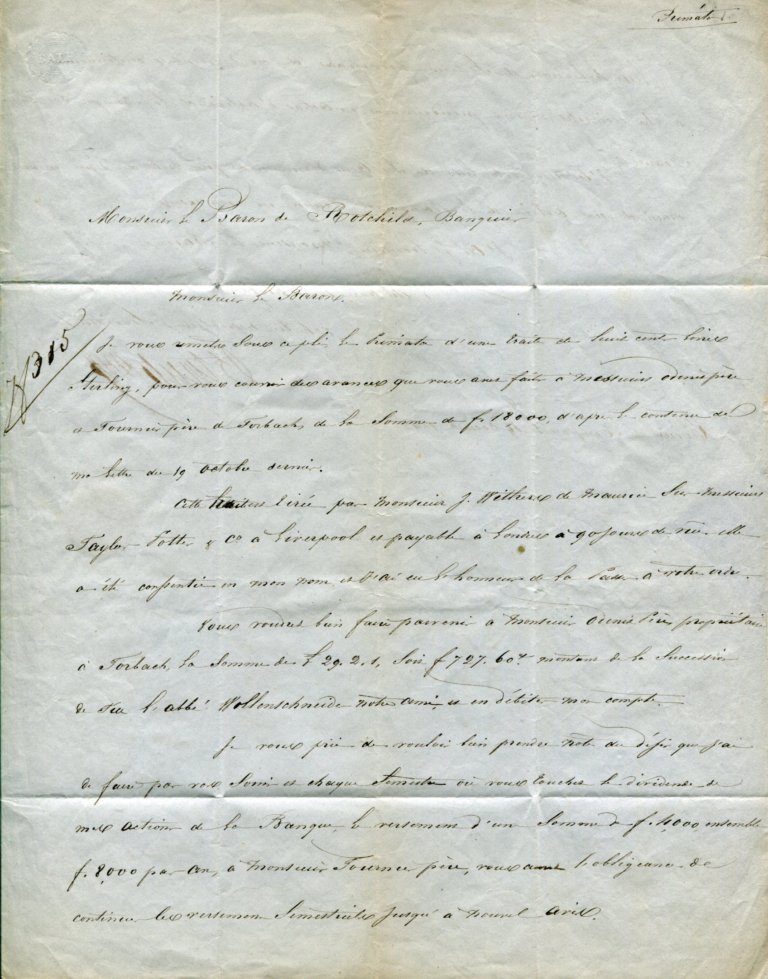 Primata
Monsieur le Baron de Rotchild, Banquier
Monsieur le Baron.
N 315
Je vous remets sous ce pli, la Primata d'une traite de huit cent livres
Sterling, pour vous couvrir des avances que vous avez faites à Messieurs père
et Tournier père de Forbach, de la Somme de f. 18000, d'après le contenu de
ma lettre du 19 octobre dernier.
Cette traite est tirée par Monsieur J. Withers de Maurice Sur Messieurs
Taylor Potter & Co à Liverpool et payable à Londres à 90 jours de vue, elle
a été consentie en mon nom et j'ai eu l'honneur de la Passer à votre ordre.
Vous voudrez bien faire parvenir à Monsieur père, propriétaire
à Forbach, la Somme de £ 29. 2. 1, Soit f 727. 60 montant de la Succession
de feu l'abbé Wollenschneider notre ami, et en débiter mon compte.
Je vous prie de vouloir bien prendre note du désir que j'ai
de faire par vos Soins et chaque Semestre où vous touchez le dividende de
mes actions de la Banque, le versement d'une Somme de f. 4,000 ensemble
f. 8,000 par an, à Monsieur Tournier père, vous aurez l'obligeance de
continuer les versements Semestriels jusqu'à nouvel avis.